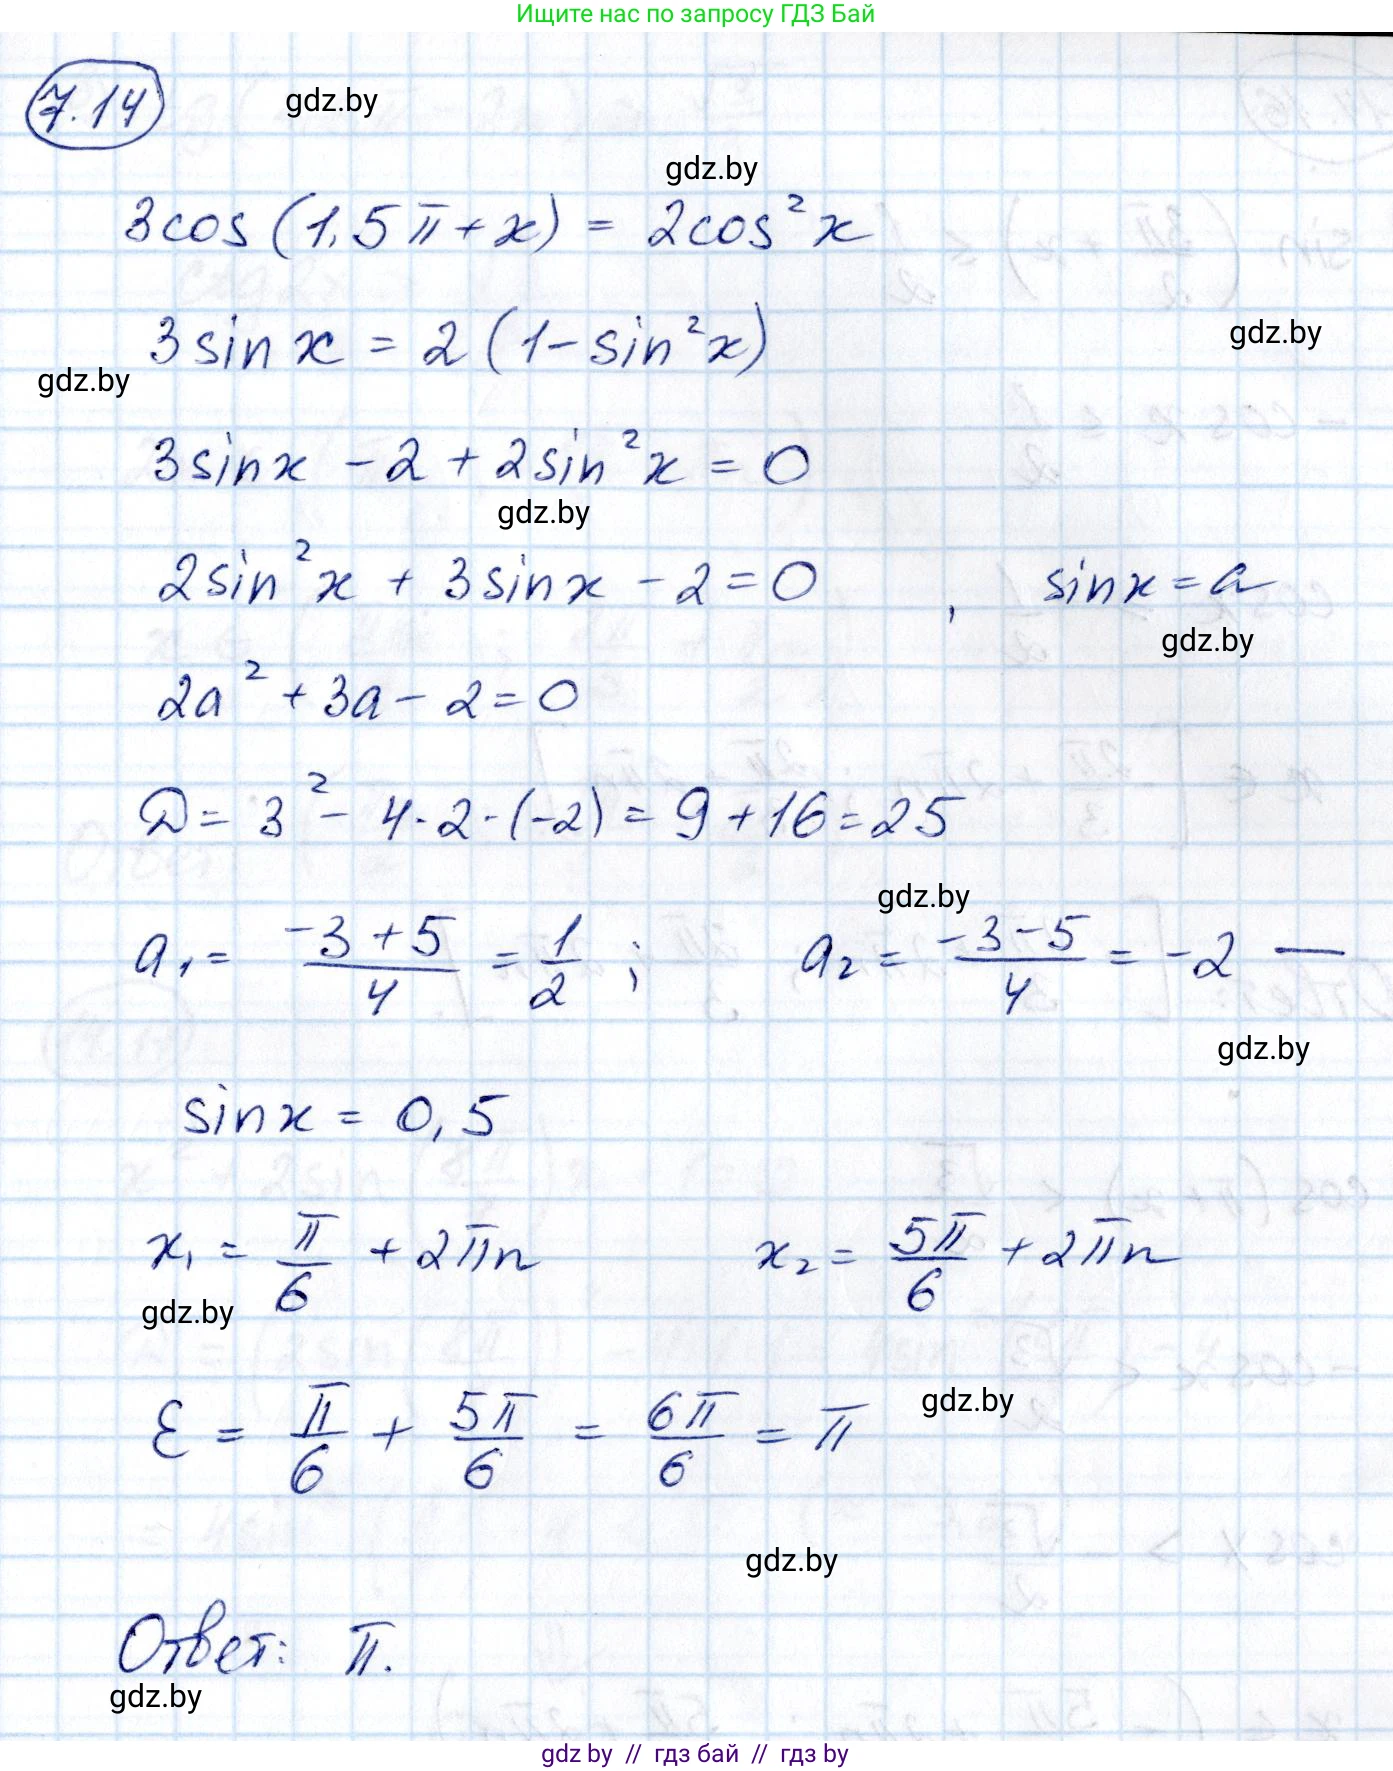 Ищите нас по запросу ГДЗ Бай
7.14
gdz.by
gdz.by
3cos(1,5π+x) = 2cos²x
gdz.by
3sin x = 2(1-sin²x)
gdz.by
3sinx - 2 + 2sin²x = 0
gdz.by
2sin²x + 3sinx - 2 = 0 , sinx = a
gdz.by
2a² + 3a - 2 = 0
D = 3² - 4·2·(-2) = 9 + 16 = 25
gdz.by
a₁ = (-3+5)/4 = 1/2 ; a₂ = (-3-5)/4 = -2 —
gdz.by
sinx = 0,5
x₁ = π/6 + 2πn x₂ = 5π/6 + 2πn
gdz.by
Ɛ = π/6 + 5π/6 = 6π/6 = π
gdz.by
gdz.by
Ответ: π.
gdz.by
gdz by // гдз бай // гдз by